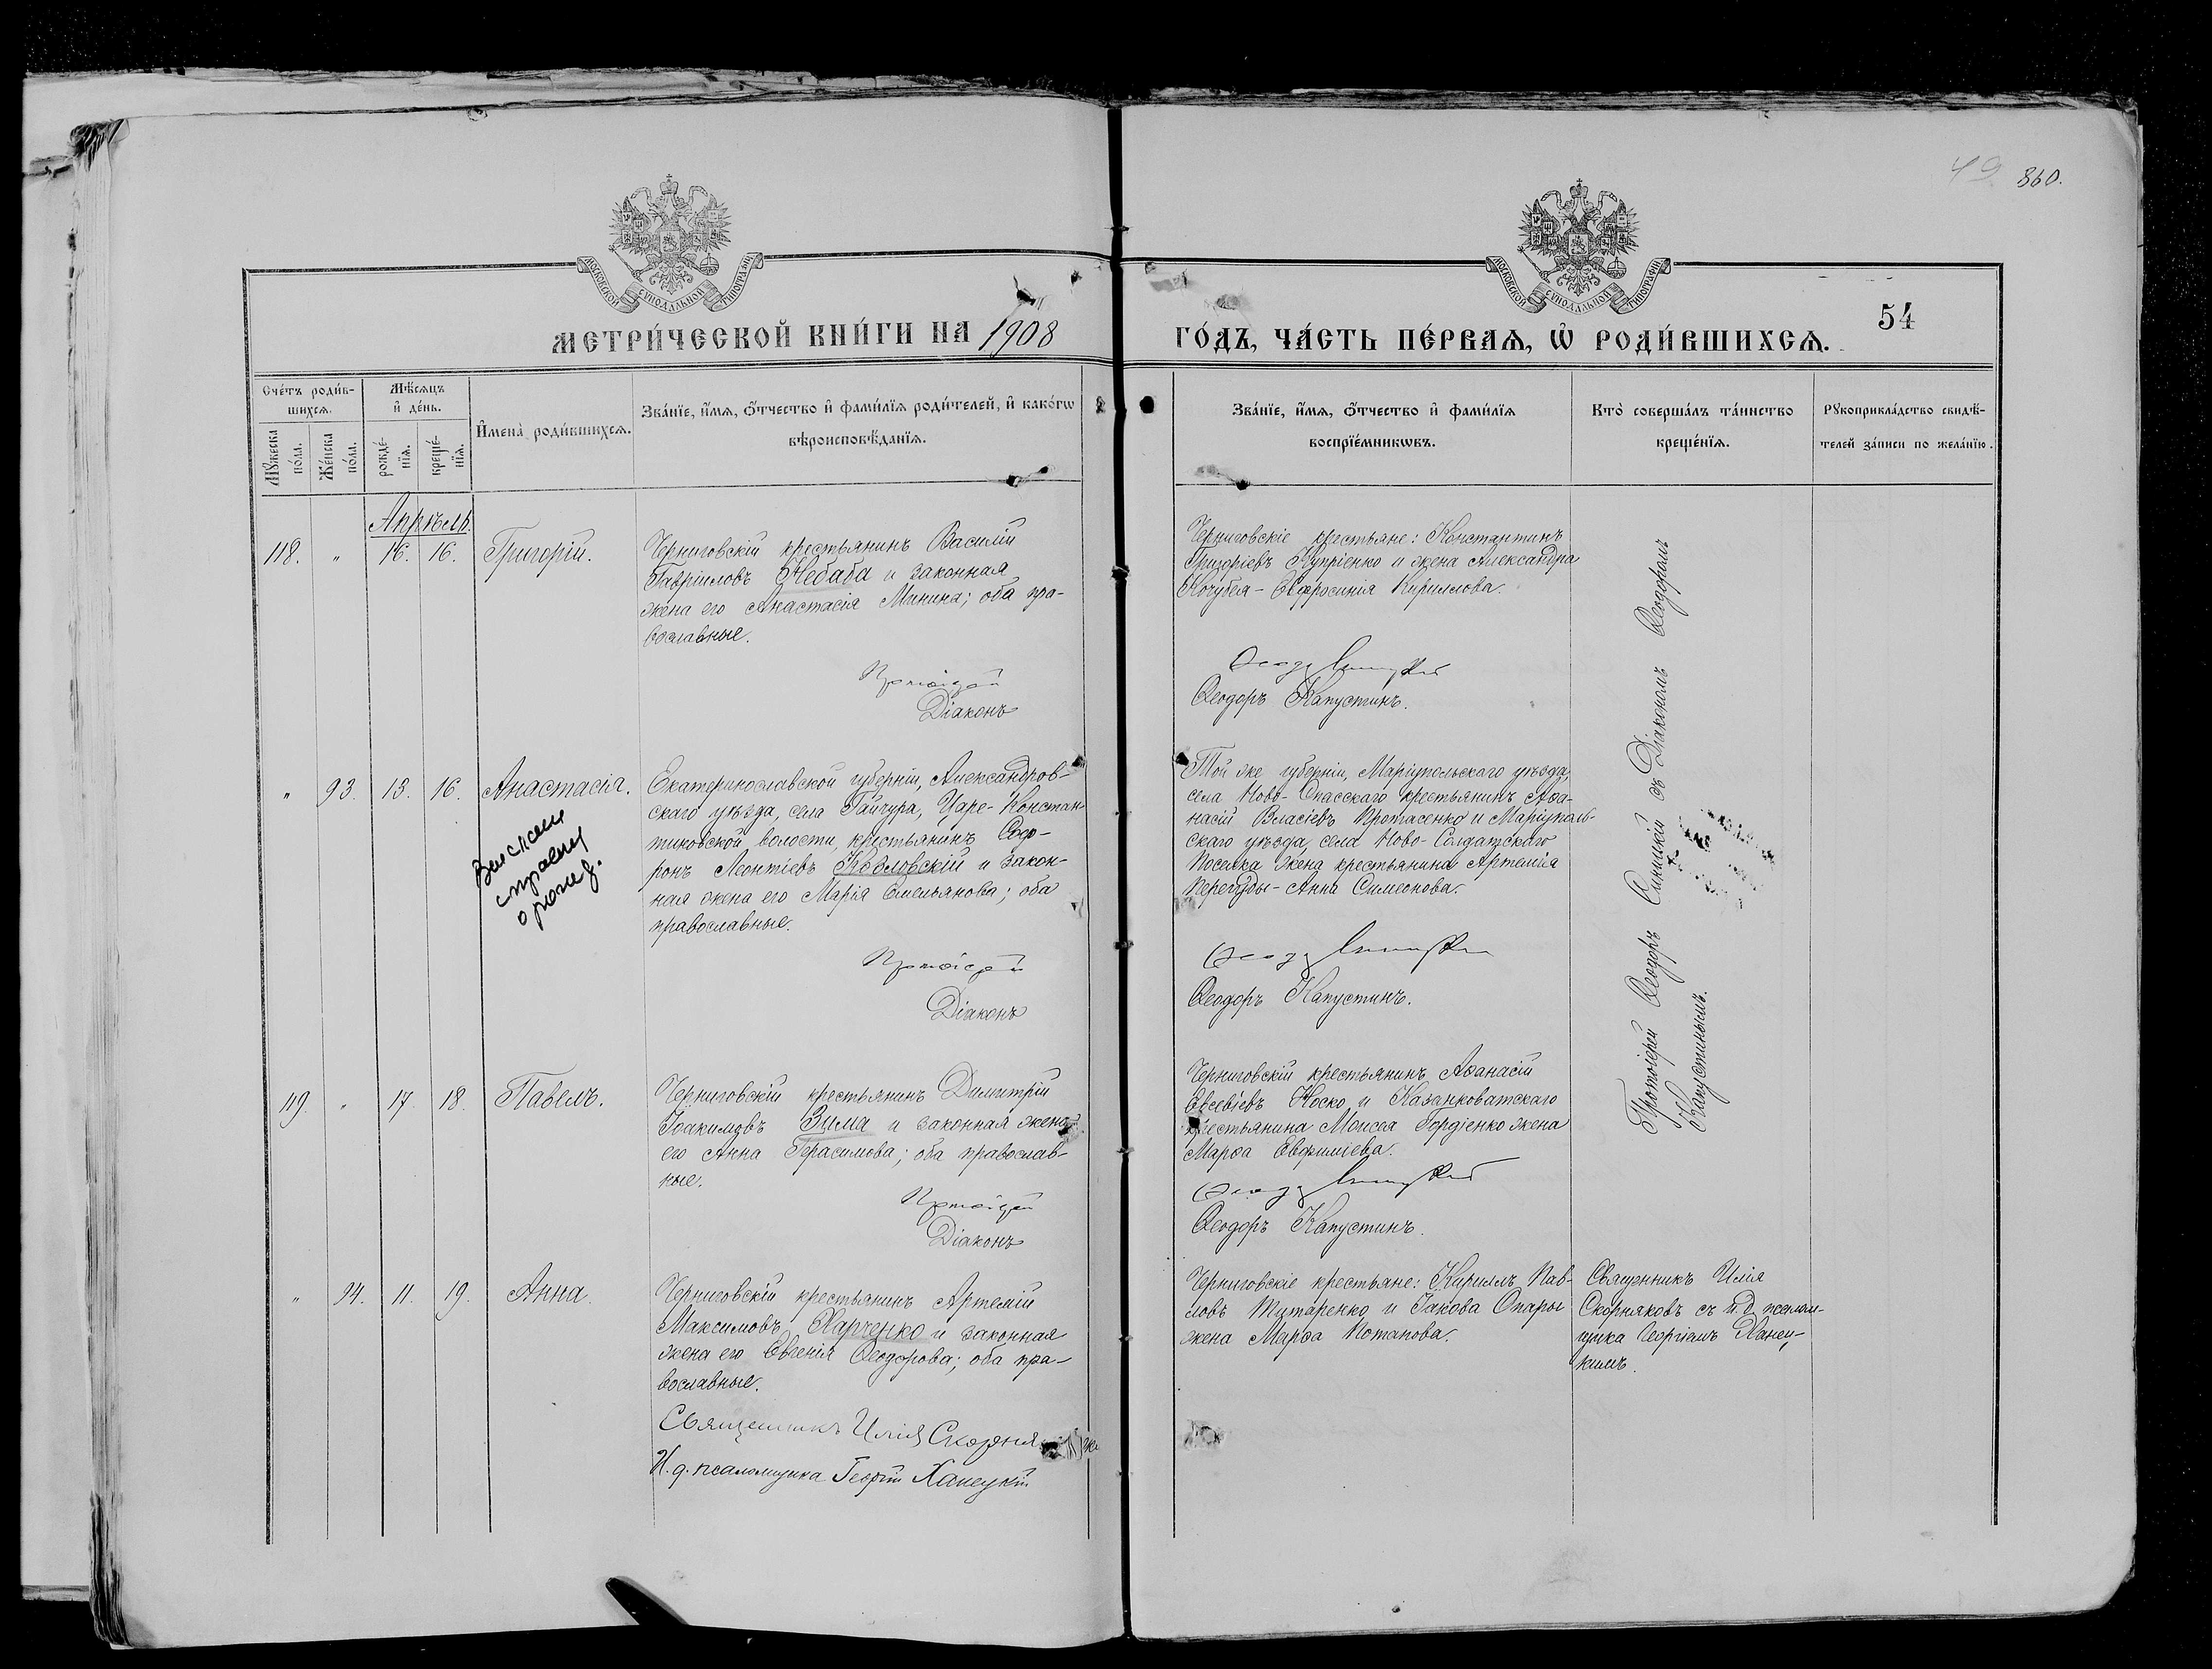 49 360.
МОСКОВСКОЙ СѴНОДАЛЬНОЙ ТИПОГРАФІИ
МОСКОВСКОЙ СѴНОДАЛЬНОЙ ТИПОГРАФІИ
54
МЕТРИ́ЧЕСКОЙ КНИ́ГИ НА 1908
ГО́ДЪ, ЧА́СТЬ ПЕ́РВАѦ, Ѡ҆ РОДИ́ВШИХСѦ.
Сче́тъ роди́в-
шихсѧ.
Мѣ́сѧцъ
и҆ де́нь.
И҆мена̀ роди́вшихсѧ.
Зва́нїе, и҆́мѧ, ѻ҆́тчество и҆ фами́лїѧ роди́телей, и҆ како́гѡ
вѣроисповѣ́данїѧ.
Мꙋ́жеска
по́ла.
Же́нска
по́ла.
рожде́-
нїѧ.
креще́-
нїѧ.
Зва́нїе, и҆́мѧ, ѻ҆́тчество и҆ фами́лїѧ
воспрїе́мникѡвъ.
Кто̀ соверша́лъ та́инство
креще́нїѧ.
Рꙋкоприкла́дство свидѣ́-
телей за́писи по жела́нїю.
Апрѣль.
118. " 16. 16. Григорій.
Черниговскій крестьянинъ Василій
Гавріиловъ Небаба и законная
жена его Анастасія Минина; оба пра-
вославные.
Протоіерей
Діаконъ
Черниговскіе крестьяне: Константинъ
Григоріевъ Купріенко и жена Александра
Кочубея - Евфросинія Кириллова.
Ѳеодоръ Капустинъ.
" 93. 13. 16. Анастасія.
Екатеринославской губерніи, Александров-
скаго уѣзда, села Гайчура, Царе-Констан-
тиновской волости, крестьянинъ Софо-
ронъ Леонтіевъ Козловскій и закон-
ная жена его Марія Емельянова; оба
православные.
Протоіерей
Діаконъ
Той же губерніи, Маріупольскаго уѣзда,
села Ново-Спасскаго крестьянинъ Аѳа-
насій Власіевъ Протасенко и Маріуполь-
скаго уѣзда, села Ново-Солдатскаго
Поселка жена крестьянина Артемія
Перегуды - Анна Симеонова.
Ѳеодоръ Капустинъ.
119. " 17. 18. Павелъ.
Черниговскій крестьянинъ Димитрій
Іоакимовъ Зима и законная жена
его Анна Герасимова; оба православ-
ные.
Протоіерей
Діаконъ
Черниговскій крестьянинъ Аѳанасій
Евсевіевъ Носко и Казанковатскаго
крестьянина Моисея Гордіенко жена
Марѳа Евфиміева.
Ѳеодоръ Капустинъ.
Протоіерей Ѳеодоръ Синицкій съ Діакономъ Ѳеодоромъ
Капустинымъ.
" 94. 11. 19. Анна.
Черниговскій крестьянинъ Артемій
Максимовъ Харченко и законная
жена его Евгенія Ѳеодорова; оба пра-
вославные.
Священникъ Илія Скорня
И. д. псаломщика Георгій Ханецкій
Черниговскіе крестьяне: Кириллъ Пав-
ловъ Титаренко и Іакова Опары
жена Марѳа Потапова.
Священникъ Илія
Скорняковъ съ и. д. псалом-
щика Георгіемъ Ханец-
кимъ.